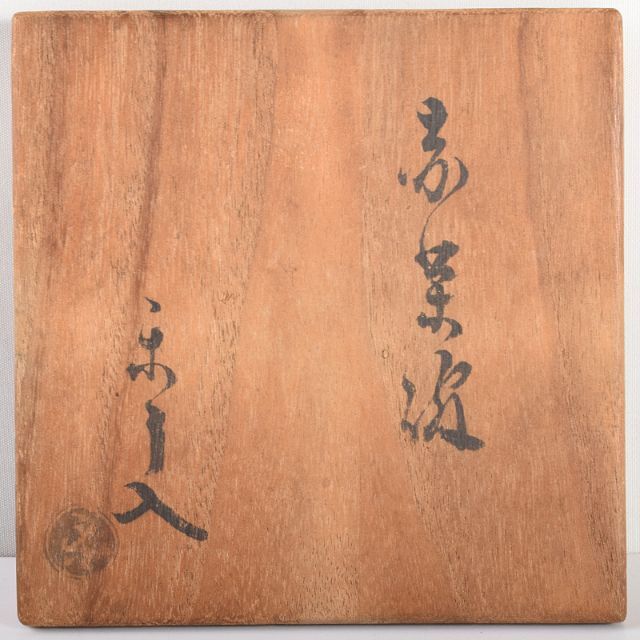 赤茶碗
楽了入